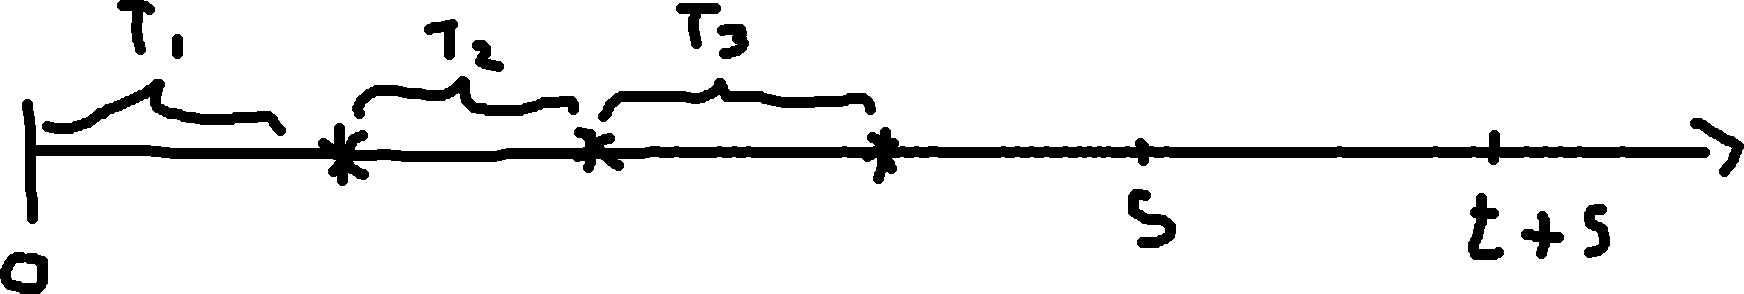 T1 T2 T3
0 s t+s